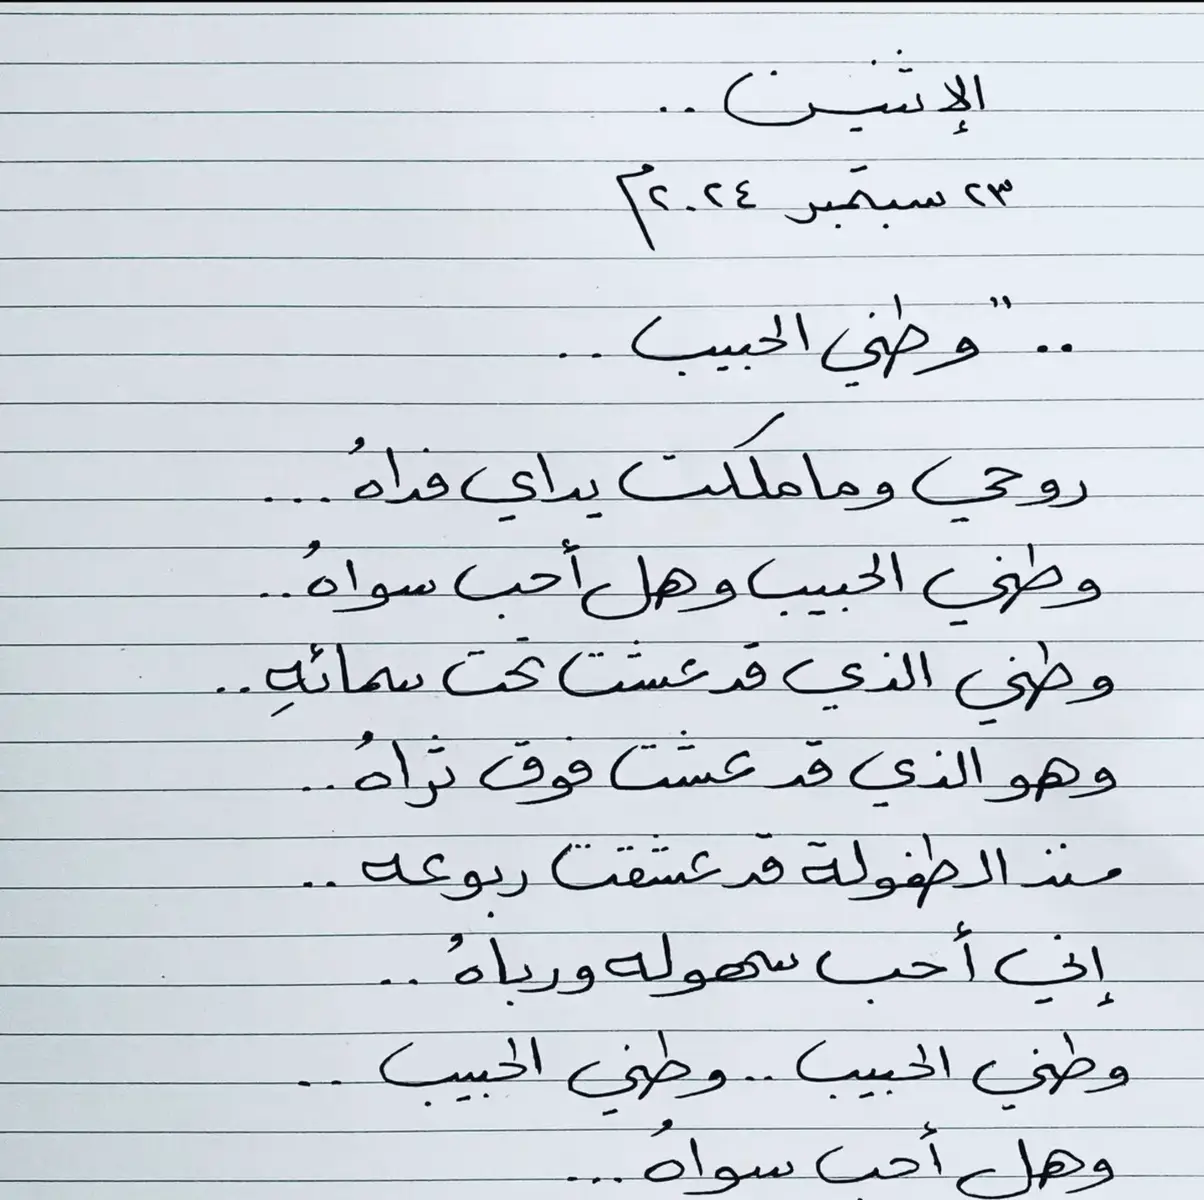 الإثنين ..
٢٣ سبتمبر ٢٠٢٤م
.. " وطني الحبيب ..
روحي وما ملكت يداي فداهُ ...
وطني الحبيب وهل أحب سواهُ ..
وطني الذي قد عشت تحت سمائهِ ..
وهو الذي قد عشت فوق ثراهُ ..
منذ الطفولة قد عشقت ربوعه ..
إني أحب سهوله ورباهُ ..
وطني الحبيب .. وطني الحبيب ..
وهل أحب سواهُ ...